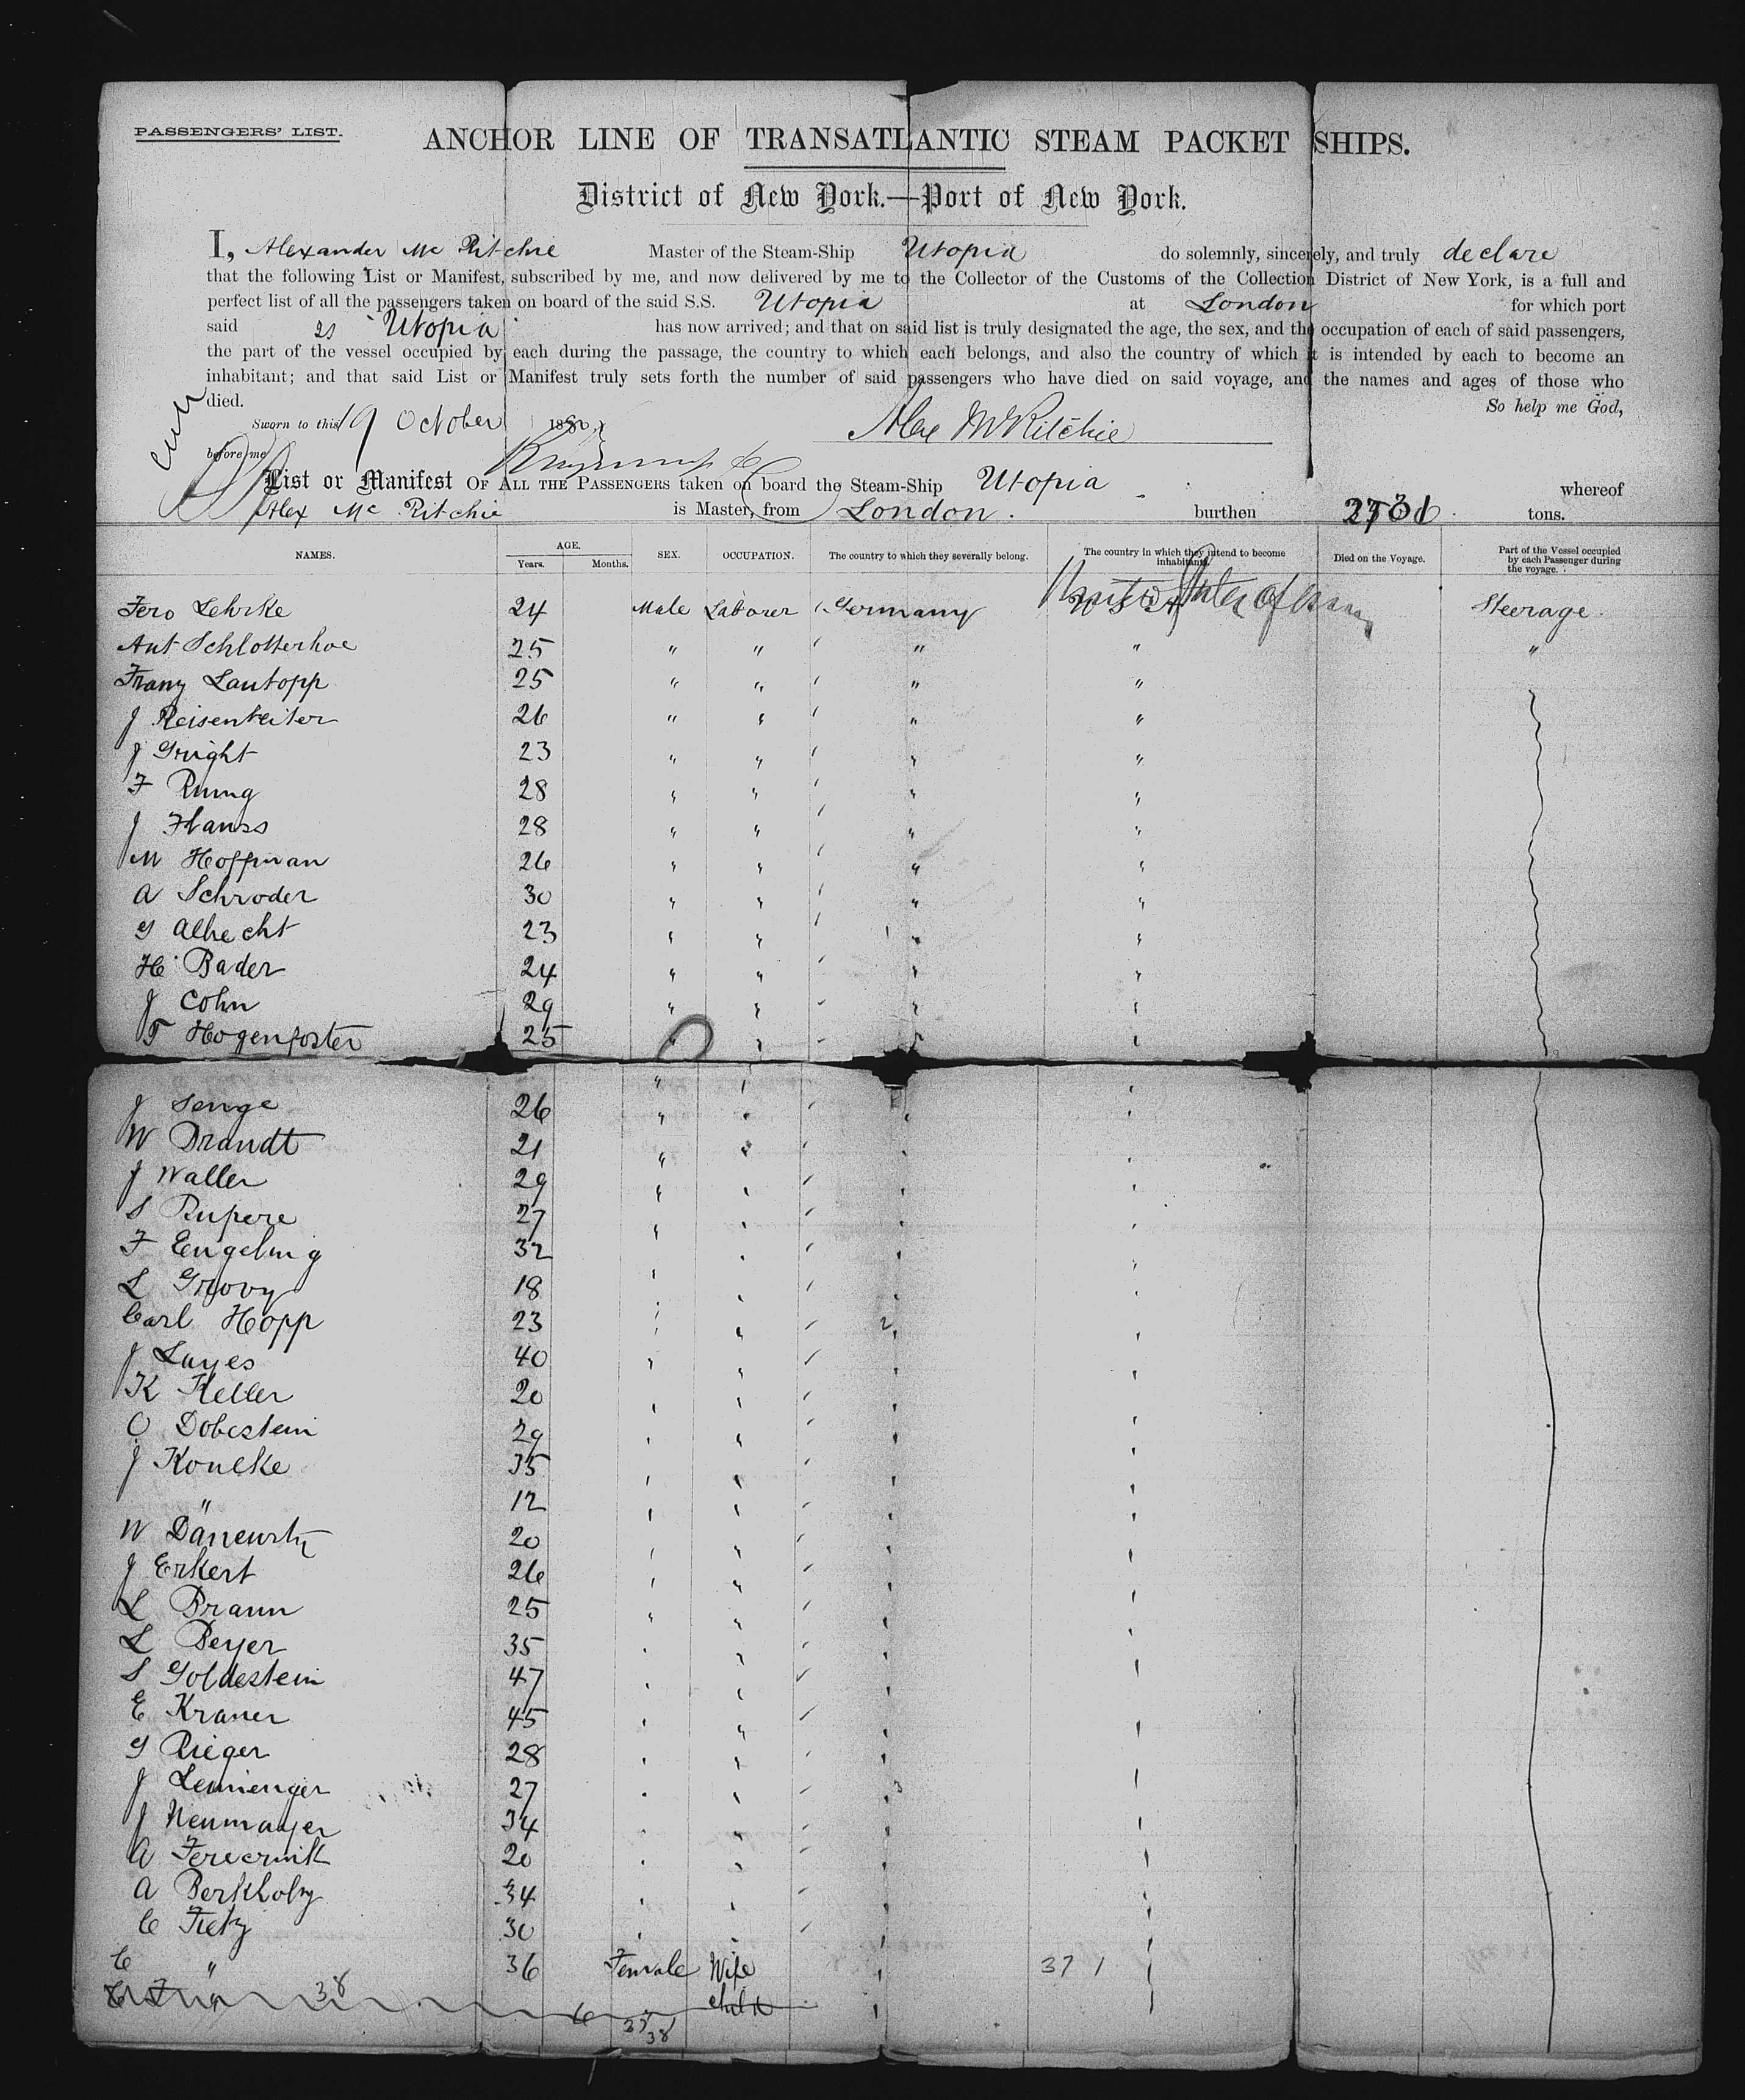 PASSENGERS' LIST.
ANCHOR LINE OF TRANSATLANTIC STEAM PACKET SHIPS.
District of New York.—Port of New York.
I, Alexander Mc Ritchie Master of the Steam-Ship Utopia do solemnly, sincerely, and truly declare
that the following List or Manifest, subscribed by me, and now delivered by me to the Collector of the Customs of the Collection District of New York, is a full and
perfect list of all the passengers taken on board of the said S.S. Utopia at London for which port
said ss "Utopia" has now arrived; and that on said list is truly designated the age, the sex, and the occupation of each of said passengers,
the part of the vessel occupied by each during the passage, the country to which each belongs, and also the country of which it is intended by each to become an
inhabitant; and that said List or Manifest truly sets forth the number of said passengers who have died on said voyage, and the names and ages of those who
died. So help me God,
Sworn to this 19 October 1880 Alex McRitchie
before me
List or Manifest OF ALL THE PASSENGERS taken on board the Steam-Ship Utopia whereof
Alex Mc Ritchie is Master, from London. burthen 2731 tons.
NAMES. AGE. Years. Months. SEX. OCCUPATION. The country to which they severally belong. The country in which they intend to become inhabitants. Died on the Voyage. Part of the Vessel occupied by each Passenger during the voyage.
Fero Lehrke 24 Male Laborer Germany United States of Steerage.
Ant Schlotterhoe 25 " " " " "
Franz Lautopp 25 " " " "
J Reisenteiter 26 " " " "
J Gright 23 " " " "
F Rung 28 " " " "
J Hanss 28 " " " "
M Hoffman 26 " " " "
A Schroder 30 " " " "
G Albecht 23 " " " "
H Bader 24 " " " "
J Cohn 29 " " " "
T Hogenforster 25 " " " "
J Senge 26 " " " "
W Brandt 21 " " " "
J Waller 29 " " " "
S Rupere 27 " " " "
F Engeling 32 " " " "
L Groovy 18 " " " "
Carl Hopp 23 " " " "
J Luyes 40 " " " "
K Keller 20 " " " "
O Dobestein 29 " " " "
J Koneke 35 " " " "
" 12 " " " "
W 20 " " " "
J Erkert 26 " " " "
L Braun 25 " " " "
L Beyer 35 " " " "
S Goldestein 47 " " " "
E Kraner 45 " " " "
G Rieger 28 " " " "
J Lemienger 27 " " " "
J Neumayer 34 " " " "
A 20 " " " "
A Berkholz 34 " " " "
C Fietz 30 " " " "
C " 36 Female Wife " 37 1 "
38 6 " child "
37
38